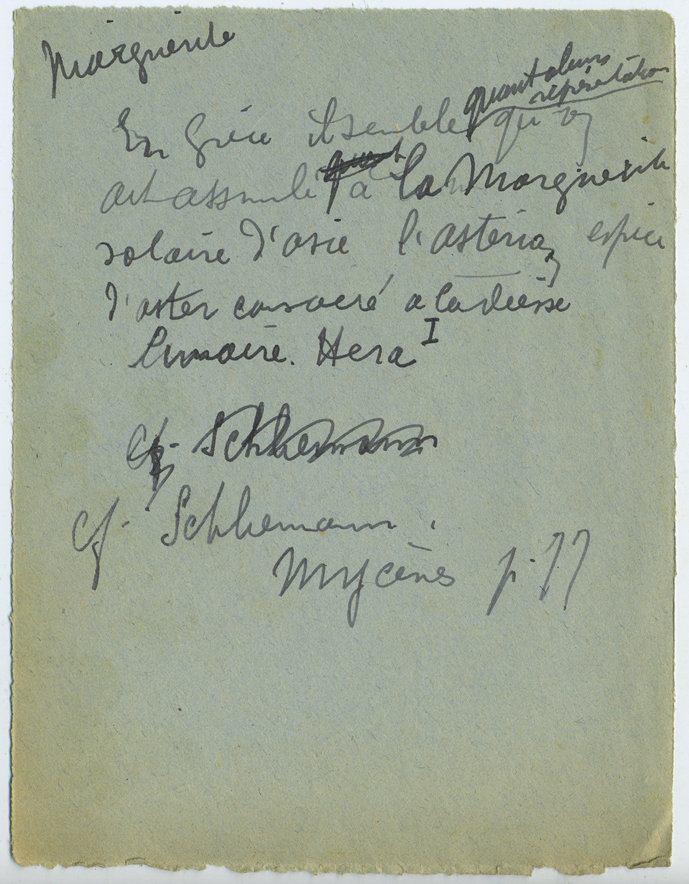 Marguerite
quant a leurs
représentation
En Grèce il semble qu'on
ait assimilé à la Marguerite
solaire d'asie l'astérion, espèce
d'aster consacré a la déesse
lunaire. Hera I
cf. Schliemann
cf. Schliemann.
Mycènes p. 77